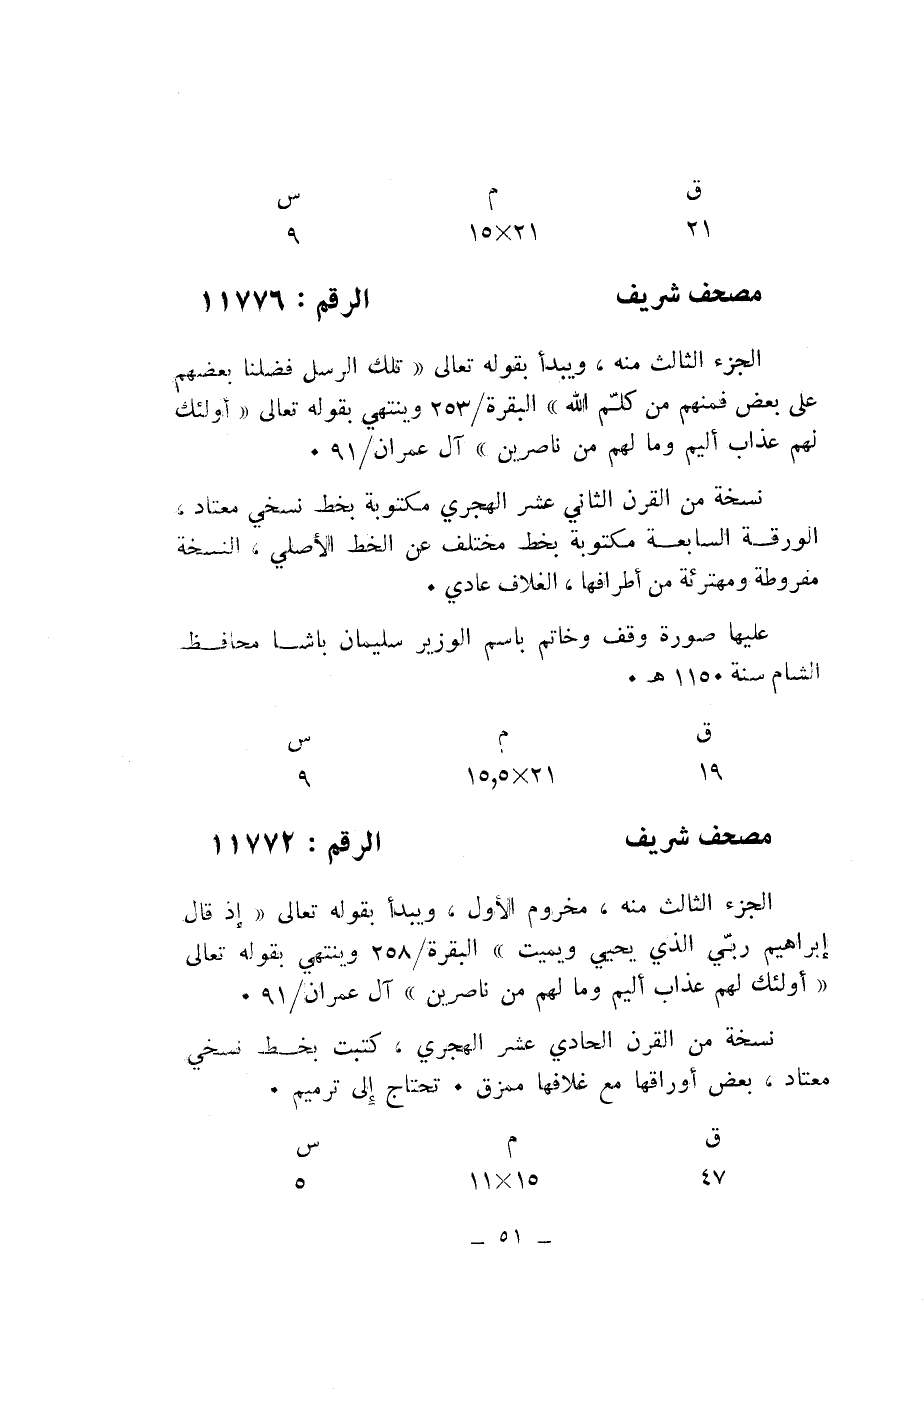 ق م س
٢١ ٢١×١٥ ٩
مصحف شريف الرقم : ١١٧٧٦
الجزء الثالث منه ، ويبدأ بقوله تعالى « تلك الرسل فضلنا بعضهم
على بعض فمنهم من كلّم الله » البقرة/٢٥٣ وينتهي بقوله تعالى « أولئك
لهم عذاب أليم وما لهم من ناصرين » آل عمران/٩١ .
نسخة من القرن الثاني عشر الهجري مكتوبة بخط نسخي معتاد ،
الورقة السابعة مكتوبة بخط مختلف عن الخط الأصلي ، النسخة
مفروطة ومهترئة من أطرافها ، الغلاف عادي .
عليها صورة وقف وخاتم باسم الوزير سليمان باشا محافظ
الشام سنة ١١٥٠ هـ .
ق م س
١٩ ٢١×١٥,٥ ٩
مصحف شريف الرقم : ١١٧٧٢
الجزء الثالث منه ، مخروم الأول ، ويبدأ بقوله تعالى « إذ قال
إبراهيم ربّي الذي يحيي ويميت » البقرة/٢٥٨ وينتهي بقوله تعالى
« أولئك لهم عذاب أليم وما لهم من ناصرين » آل عمران/٩١ .
نسخة من القرن الحادي عشر الهجري ، كتبت بخط نسخي
معتاد ، بعض أوراقها مع غلافها ممزق . تحتاج إلى ترميم .
ق م س
٤٧ ١٥×١١ ٥
– ٥١ –